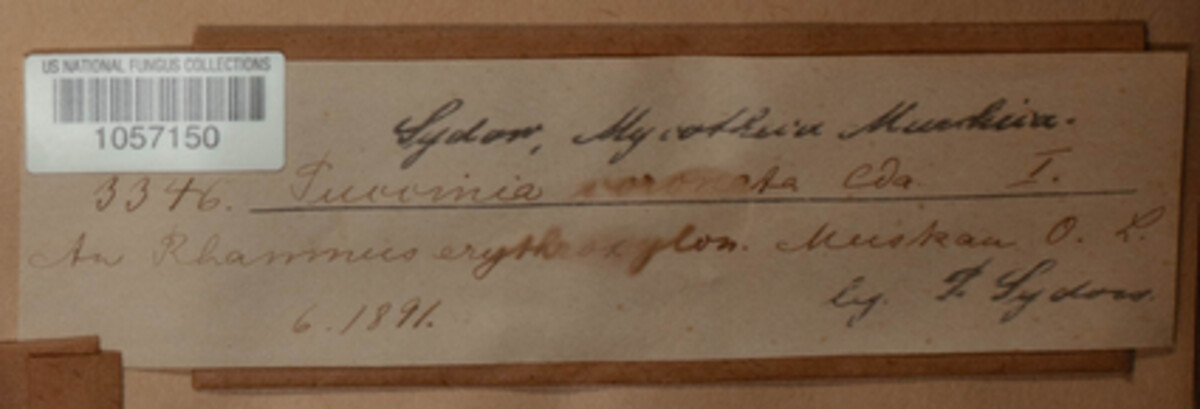 US NATIONAL FUNGUS COLLECTIONS
1057150
Sydow, Mycotheca Marchica.
3346. Puccinia coronata Cda I.
An Rhamnus erythroxylon. Muskau O. L.
6. 1891.
leg. P. Sydow.